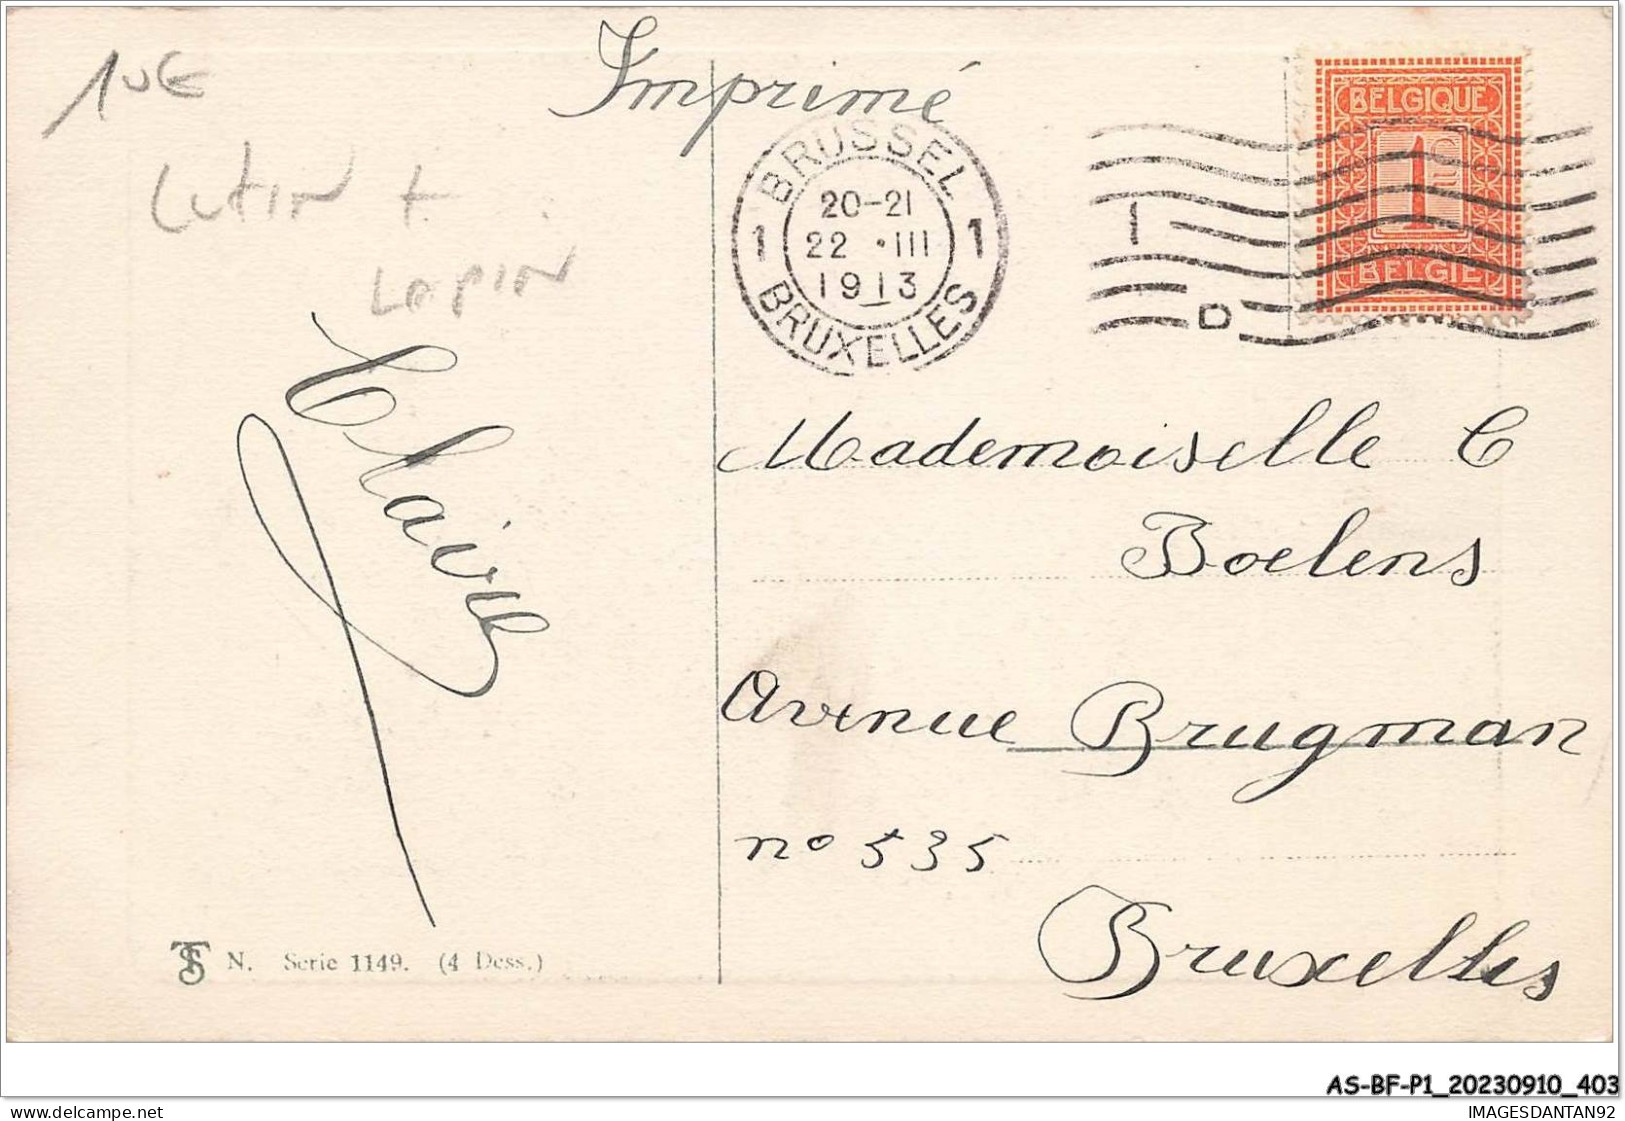 10€
Imprimé
LUTIN +
LAPIN
BRUSSEL
20-21
1 22 •III 1
1913
BRUXELLES
BELGIQUE
1c
BELGIE
I
D
Claire
Mademoiselle C
Boelens
Avenue Brugman
n° 535
Bruxelles
TSN N. Serie 1149. (4 Dess.)
AS-BF-P1_20230910_403
www.delcampe.net
IMAGESDANTAN92